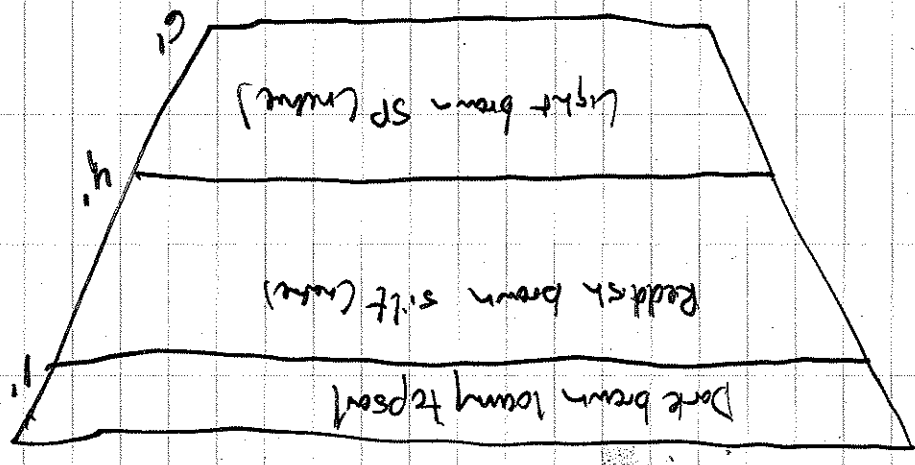 Dark brown loamy topsoil
1'
Reddish brown silt (native)
4'
Light brown SP (native)
6'